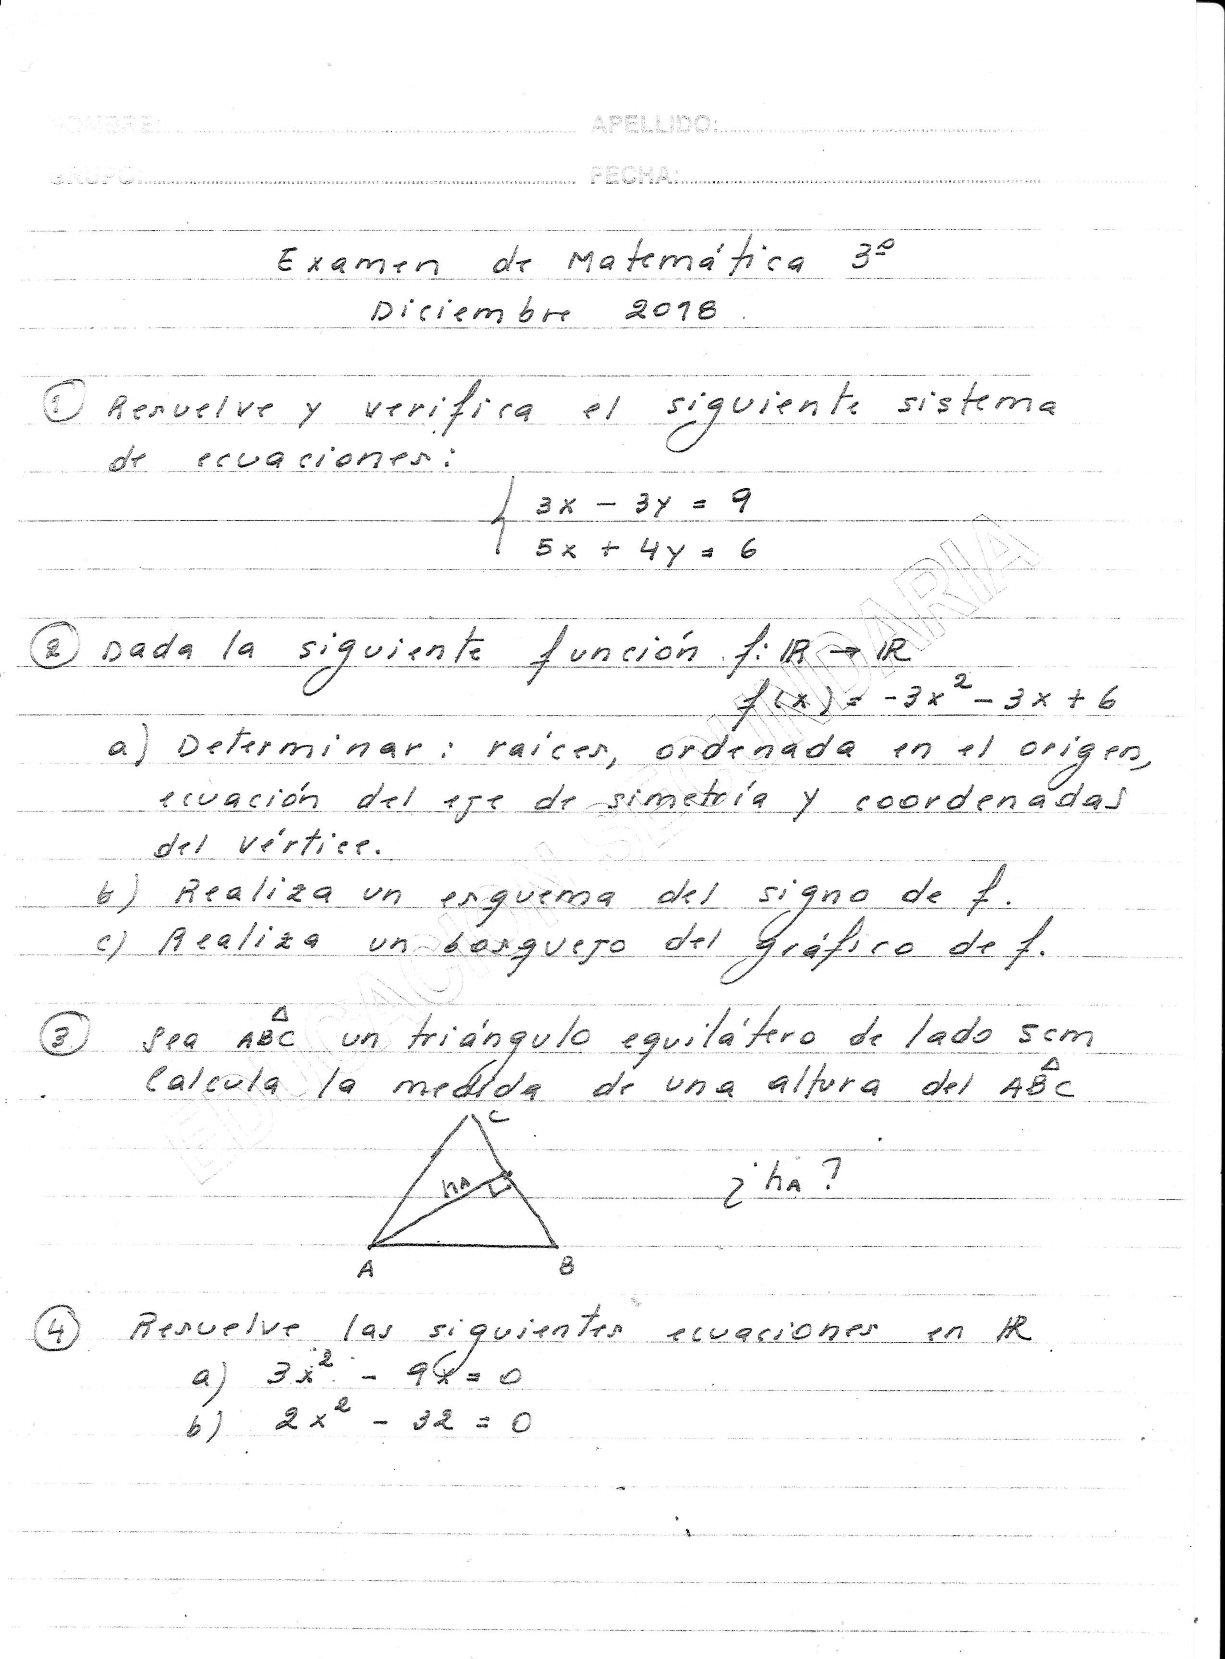 NOMBRE: APELLIDO:
GRUPO: FECHA:
Examen de Matemática 3º
Diciembre 2018
① Resuelve y verifica el siguiente sistema
de ecuaciones:
3x - 3y = 9
5x + 4y = 6
② Dada la siguiente función f: ℝ → ℝ
f(x) = -3x² - 3x + 6
a) Determinar: raíces, ordenada en el origen,
ecuación del eje de simetría y coordenadas
del vértice.
b) Realiza un esquema del signo de f.
c) Realiza un bosquejo del gráfico de f.
③ Sea ABC un triángulo equilátero de lado 5cm
Calcula la medida de una altura del ABC
C
hA ¿hA?
A B
④ Resuelve las siguientes ecuaciones en ℝ
a) 3x² - 9x = 0
b) 2x² - 32 = 0
EDUCACIÓN SECUNDARIA